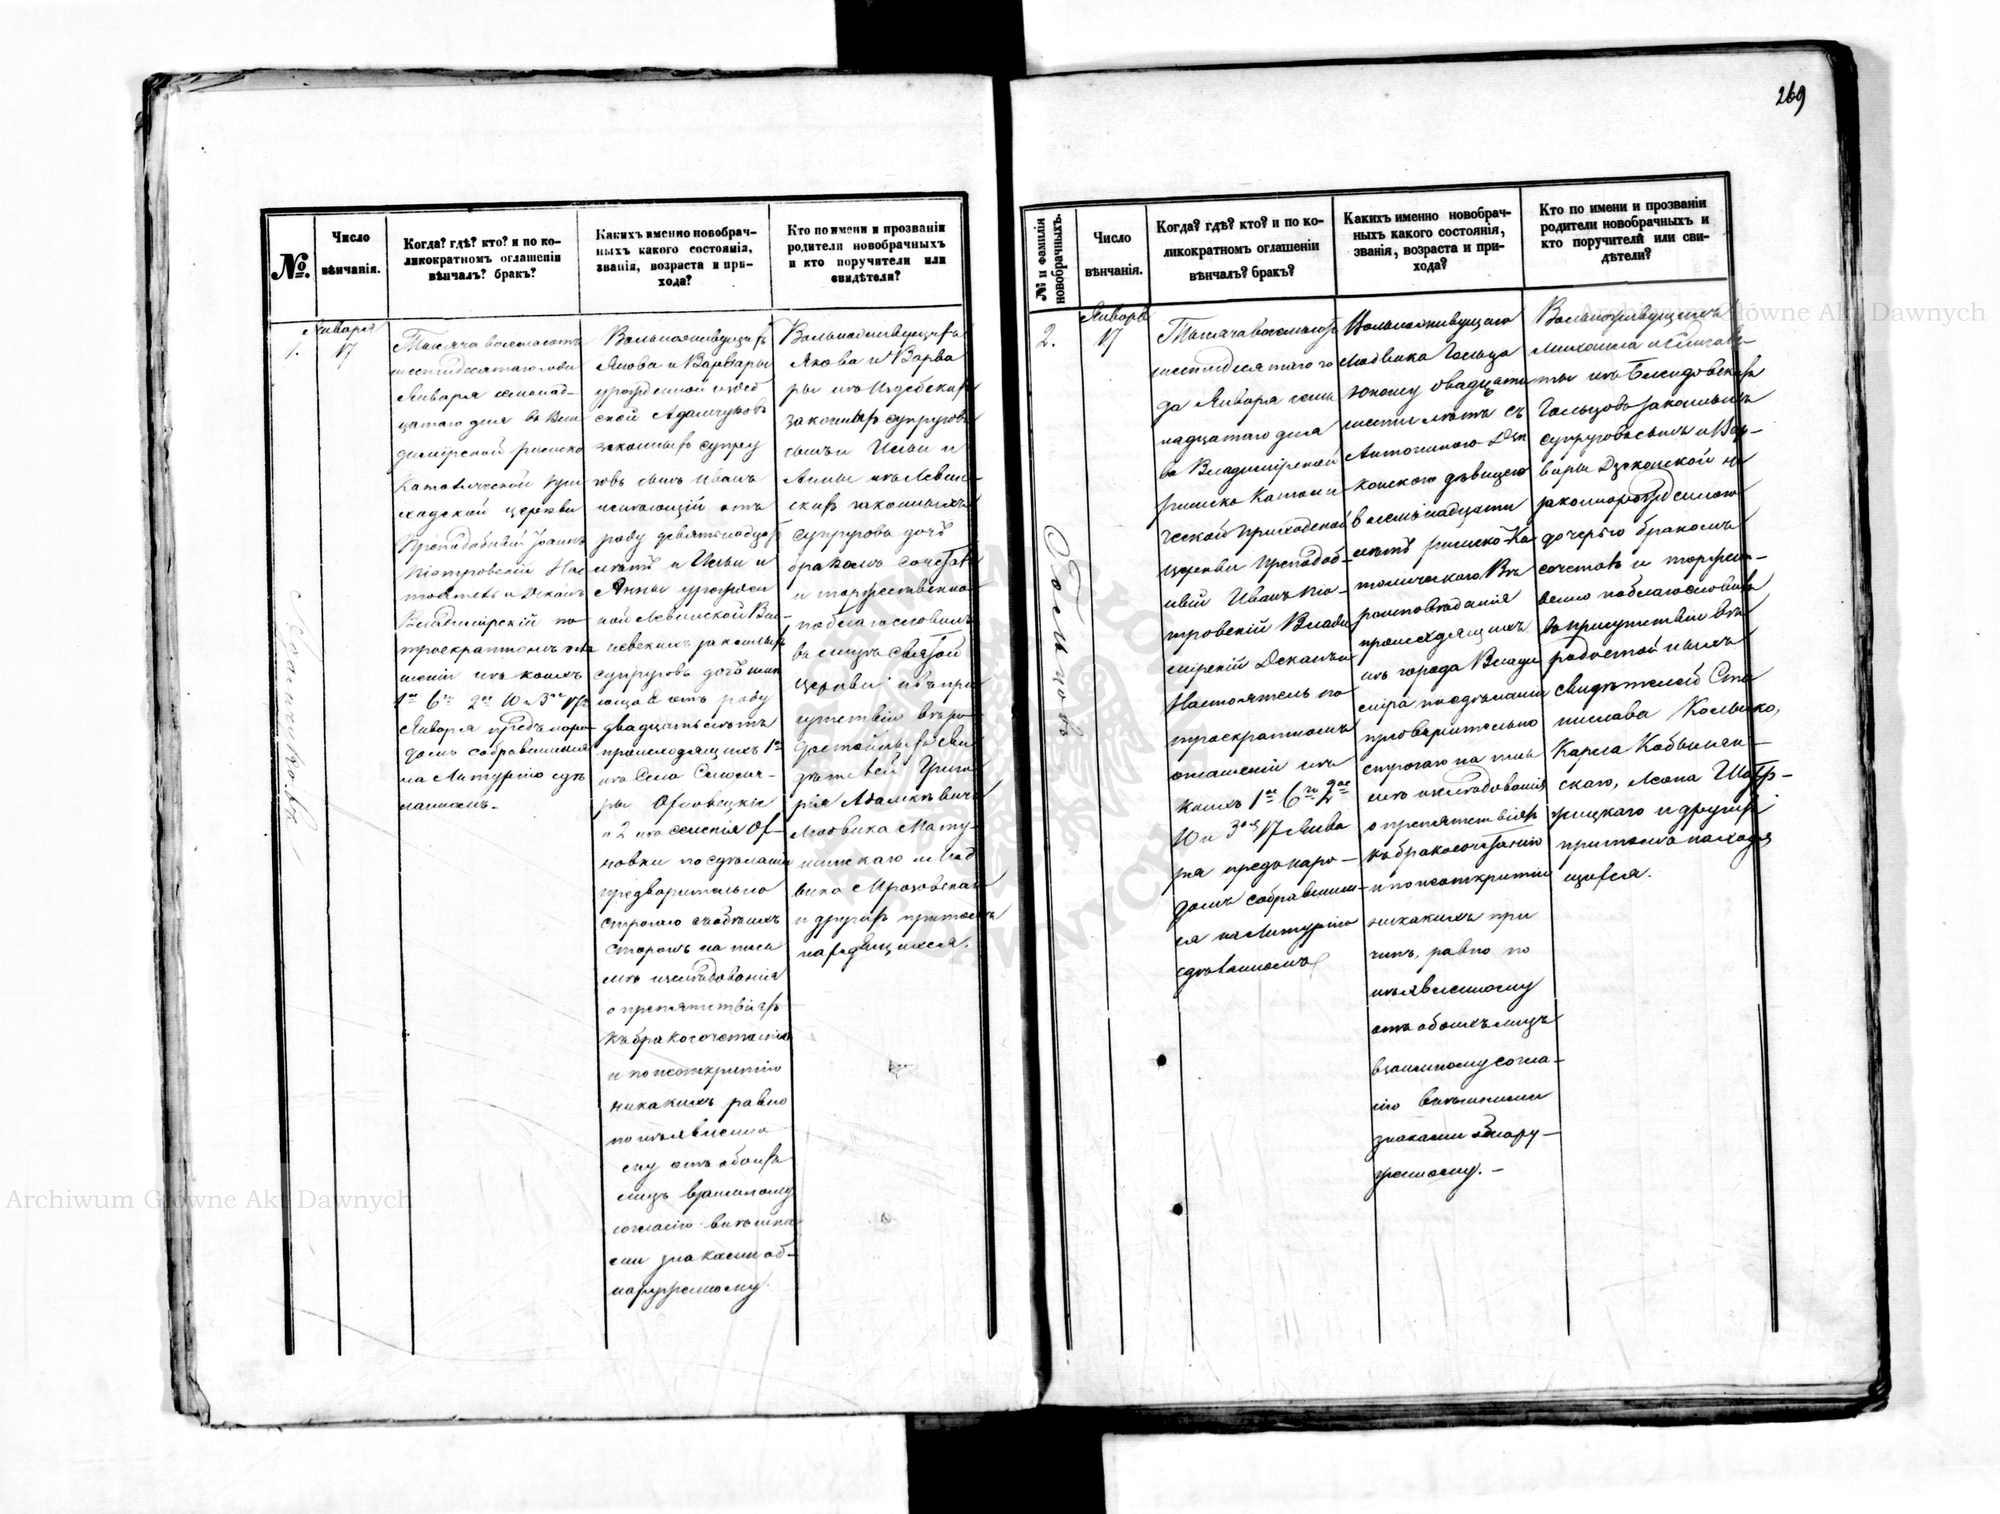 №.
Число
вѣнчанія.
Когда? гдѣ? кто? и по ко-
ликократномъ оглашеніи
вѣнчалъ? бракъ?
Какихъ именно новобрач-
ныхъ какого состоянія,
званія, возраста и при-
хода?
Кто по имени и прозваніи
родители новобрачныхъ
и кто поручители или
свидѣтели?
1.
Января
17
Тысяча восемьсотъ
шестидесятаго года
Января семнад-
цатаго дня въ Вла
димірской римско
Католической При
ходской церкви
Преподобный Іоаннъ
Піотровскій Нас
тоятель и Деканъ
Владимірскій по
троекратномъ огла
шеніи изъ коихъ
1ое 6го 2ое 10 и 3ое 17го
Января предъ наро-
домъ собравшимся
на Литургію сдѣ
ланномъ.
Вольноживущихъ
Якова и Варвары
урожденной
ской Адамчуковъ
законныхъ супру
говъ сынъ Иванъ
имѣющій отъ
роду девятнадцать
лѣтъ и Ильи и
Анны урожден
ной Левинской
законныхъ
супруговъ дочь имѣ
ющая отъ роду
двадцать лѣтъ
происходящихъ 1й
изъ Села
2 изъ селенія
новки по сдѣланіи
предварительно
строгаго съ обѣихъ
сторонъ на пись
мѣ изслѣдованія
о препятствіяхъ
къ бракосочетанію
и по неоткрытію
никакихъ равно
по изъявленно
му отъ обоихъ
лицъ взаимному
согласію внѣшни
ми знаками об-
наруженному.
Вольноживущихъ
Якова и Варва
ры изъ Издебскихъ
законныхъ супруговъ
сынъ и Ильи и
Анны изъ Левин-
скихъ законныхъ
супруговъ дочь
бракомъ сочеталъ
и торжественно
поблагословилъ
въ лицѣ святой
Церкви въ при
сутствіи вѣро
достойныхъ сви
дѣтелей Григо
рія Адамкевича
Людвика Мату
шинскаго и Люд
вика Мроховскаго
и другихъ притомъ
находящихся.
269
№ и фамилія
новобрачныхъ.
Число
вѣнчанія.
Когда? гдѣ? кто? и по ко-
ликократномъ оглашеніи
вѣнчалъ? бракъ?
Какихъ именно новобрач-
ныхъ какого состоянія,
званія, возраста и при-
хода?
Кто по имени и прозваніи
родители новобрачныхъ и
кто поручители или сви-
дѣтели?
2.
Января
17
Гольцовъ
Тысяча восемьсотъ
шестидесятаго го
да Января семь
надцатаго дня
въ Владимірской
римско Католи
ческой Приходской
церкви Преподоб-
ный Иванъ Піо-
тровскій Влади
мірскій Деканъ и
Настоятель по
троекратномъ
оглашеніи изъ
коихъ 1ое 6го 2ое
10 и 3ое 17 Янва
ря предъ наро-
домъ собравшим-
ся на Литургію
сдѣланномъ
Вольноживущаго
Людвика Гольца
юношу двадцати
шести лѣтъ съ
Антониною Дзи
конскою дѣвицею
восемьнадцати
лѣтъ римско-Ка
толическаго Вѣ
роисповѣданія
происходящихъ
изъ города Влади
міра по сдѣланіи
предварительно
строгаго на пись
мѣ изслѣдованія
о препятствіяхъ
къ бракосочетанію
и по неоткрытіи
никакихъ при
чинъ, равно по
изъявленному
отъ обоихъ лицъ
взаимному согла-
сію внѣшними
знаками обнару-
женному. —
Вольноживущихъ
Михаила и Елизаве-
ты изъ
Гольцовъ законныхъ
супруговъ сынъ и Вар-
вары Дзиконской не
законнорожденною
дочерью бракомъ
сочеталъ и торжест-
венно поблагословилъ
въ присутствіи вѣ
родостойныхъ
свидѣтелей Ста
нислава Кольнко,
Карла Кобылян-
скаго, Леона
жицкаго и другихъ
притомъ находя
щихся.
Archiwum Główne Akt Dawnych
Archiwum Główne Akt Dawnych